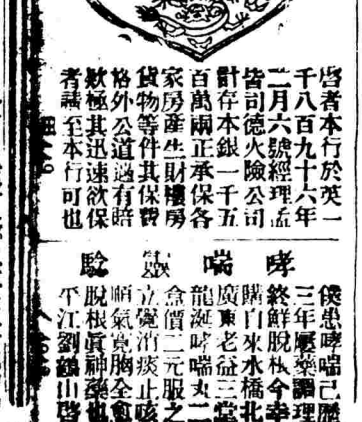 啓者本行於英一
千八百九十六年
二月六號經理孟
皆司德火險公司
計存本銀一千五
百萬兩正承保各
家房產生財樓房
貨物等件其保費
格外公道遇有賠
欵極其迅速欲保
者請至本行可也
哮喘靈驗
僕患哮喘已歷
三年屢藥調理
終鮮脫根今幸
購自來水橋北
廣東老益三堂
龍涎哮喘丸二
盒價二元服之
立覺消痰止咳
順氣寬胸全愈
脫根眞神藥也
平江劉鶴山啓